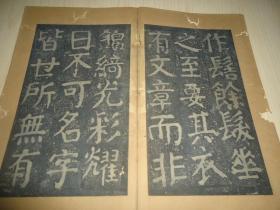 作髻餘髮坐
之至要其衣
有文章而非
錦綺光彩耀
日不可名字
皆世所無有